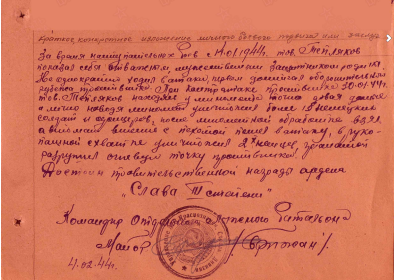 Краткое, конкретное изложение личного боевого подвига или заслуг
За время наступательных боев с 14.01.1944г. тов. Тепляков
показал себя отважным, мужественным защитником родины.
Неоднократно ходил в атаки, первым занимал оборонительные
рубежи противника. При контратаке противника 30.01.44г.
тов. Тепляков находясь у миномета точно давая данные
и лично наводя миномет уничтожил более 15 немецких
солдат и офицеров, после минометной обработки взял
вместе с пехотой пошел в атаку, в руко-
пашной схватке уничтожил 2х немцев, гранатой
разрушил огневую точку противника.
Достоин правительственной награды ордена
"Слава III степени"
Командир Отдельного Батальона
Майор
4.02.44г.